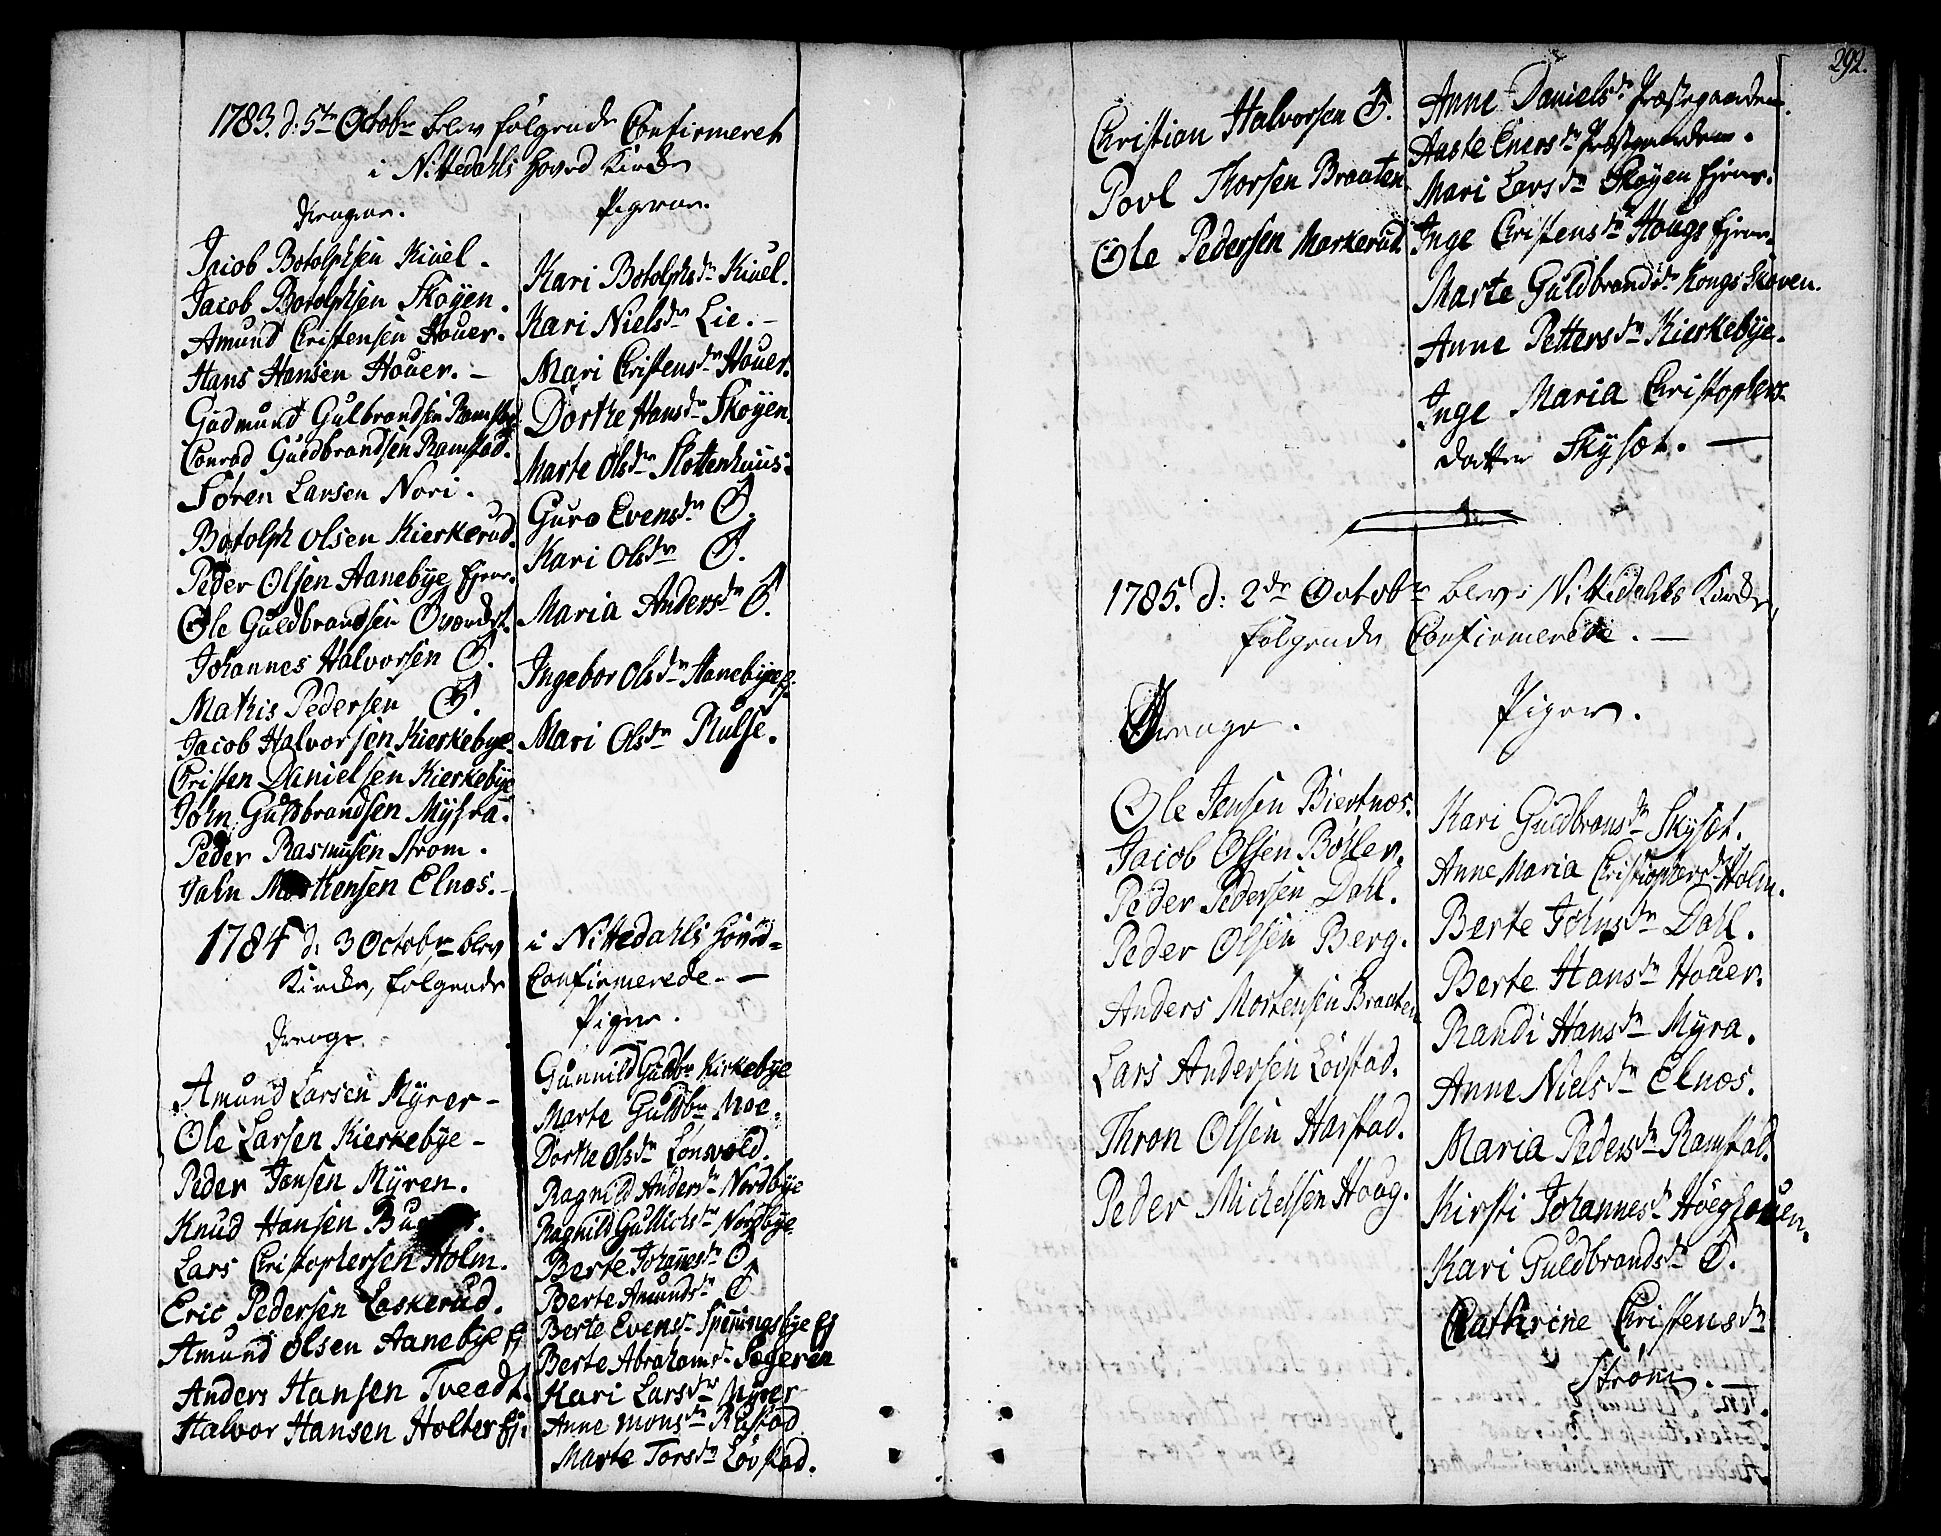 1783. d: 5te Octobr blev følgende Confirmeret
i Nittedahls Hoved Kirke
Drenger.
Jacob Botolphsen Kiuel.
Jacob Botolphsen Skøyen.
Amund Christensen Houer.
Hans Hansen Houer. –
Gudmund Gulbrandsen Ramstad
Conrad Guldbrandsen Ramstad.
Søren Larsen Nori.
Botolph Olsen Kierkerud.
Peder Olsen Aanebye Ejer.
Ole Guldbrandsen
Johannes Halvorsen Ø.
Mathis Pedersen Ø.
Jacob Halvorsen Kierkebye.
Christen Danielsen Kierkebye
John Guldbrandsen Myhra.
Peder Rasmusen Strom.
Jahn Mortensen Elnæs. –
Pigerne.
Kari Botolphsdr Kiuel.
Kari Nielsdr Lie. –
Mari Christensdr Houer.
Dorthe Hansdr Skøyen.
Marte Olsdr Slottenhuus.
Guro Evensdr Ø.
Kari Olsdr Ø.
Maria Andersdr Ø.
Ingebor Olsdr Hanebye Ej.
Mari Olsdr Rulse.
1784 d. 3 Octobr blev i Nittedahls Hoved-
Kirke, følgende Confirmerede. –
Drenge.
Amund Larsen Myrer –
Ole Larsen Kierkebye –
Peder Jensen Myren.
Knud Hansen
Lars Christophersen Holm.
Eric Pedersen Laskerud.
Amund Olsen Aanebye Ej
Anders Hansen Tveedt.
Halvor Hansen Holter Ej.
Pigerne.
Gunnild Guldbr Kirkebye
Marte Guldbr Moe.
Dorthe Olsdr Lønsvold.
Ragnild Andersdr Nordbye
Ragnild Gullichsdr Nordbye
Berte Johannesdr Ø
Berte Amundsdr Ø
Berte Evensdr Spenningsbye Ej
Berte Abrahamsdr Sageren
Kari Larsdr Myrer
Anne Monsdr Rustad
Marte Torsdr Løvstad.
292.
Christian Halvorsen Ø.
Povl Thorsen Braaten
Ole Pedersen Markerud.
Anne Danielsdr Præstegaarden.
Aaste Enersdr Præstegaarden.
Mari Larsdr Skøyen Ejer.
Inge Christensdr Hougs Ejer.
Marte Guldbrandsdr Kongs Skoven.
Anne Pettersdr Kierkebye.
Inge Maria Christophers
datter Skyset. –
1785. d: 2de Octobr blev i Nittedahls Kirke,
følgende Confirmerede. –
Drenge.
Ole Jensen Biertnæs.
Jacob Olsen Bøhler.
Peder Pedersen Dahl.
Peder Olsen Berg.
Anders Mortensen Braaten
Lars Andersen Løvstad.
Thron Olsen Harstad.
Peder Michelsen Houg.
Piger.
Kari Guldbransdr Skyset.
Anne Maria Christophersdr Holm.
Berte Johnsdr Dahl.
Berte Hansdr Houer.
Randi Hansdr Myra.
Anne Nielsdr Elnæs.
Maria Pedersdr Ramstad.
Kirsti Johannesdr Høeghouen.
Kari Guldbrandsdr Ø.
Cathrine Christensdr
Strøm. –